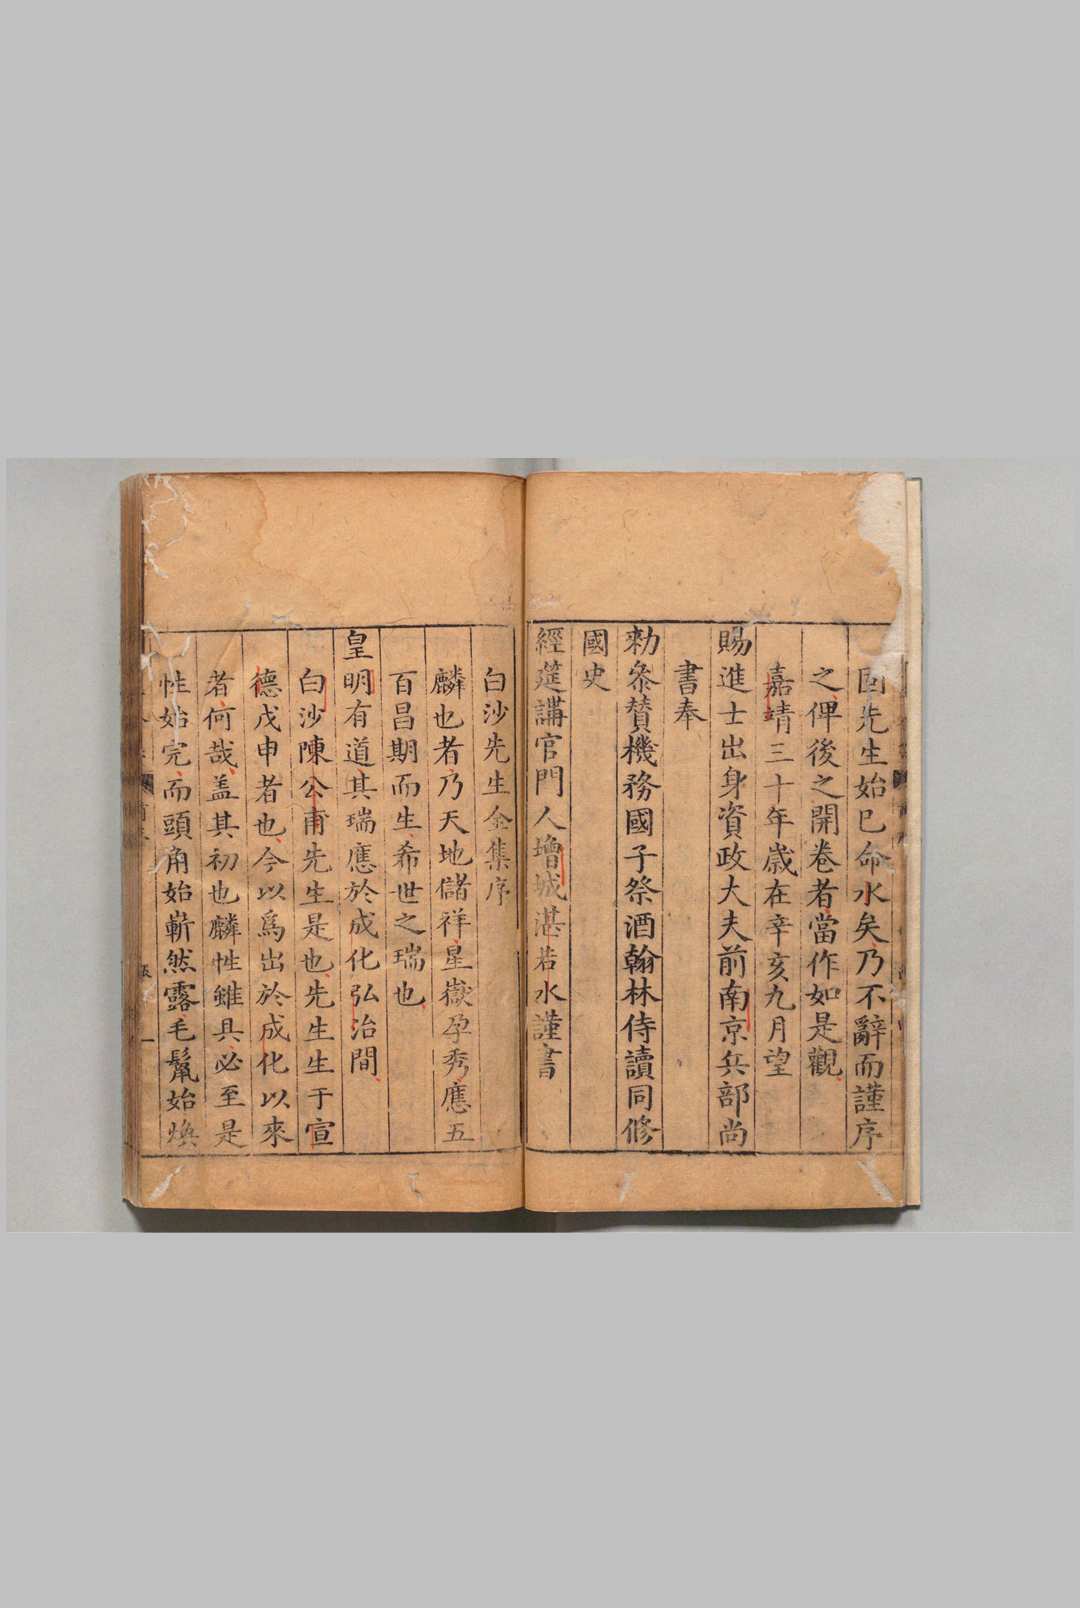 固先生始已命水矣乃不辭而謹序
之俾後之開卷者當作如是觀
嘉靖三十年歲在辛亥九月望
賜進士出身資政大夫前南京兵部尚
書奉
勑叅贊機務國子祭酒翰林侍讀同修
國史
經筵講官門人增城湛若水謹書
白沙先生全集序
麟也者乃天地儲祥星嶽孕秀應五
百昌期而生希世之瑞也
皇明有道其瑞應於成化弘治間
白沙陳公甫先生是也先生生于宣
德戊申者也今以爲出於成化以來
者何哉盖其初也麟性雖具必至是
性始完而頭角始嶄然露毛鬣始煥